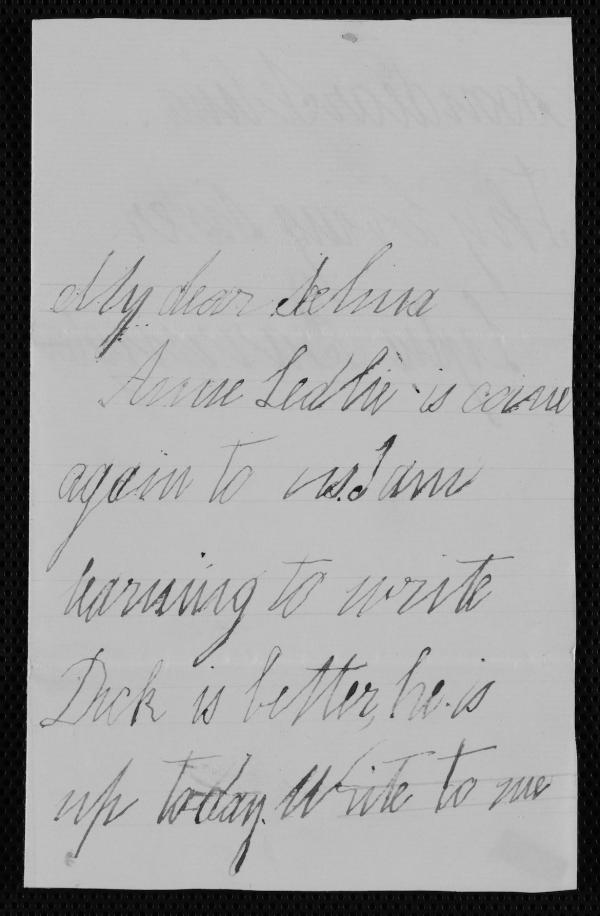 My dear Selina
Annie Ledlie is come
again to us. I am
learning to write
Dick is better, he is
up today. Write to me